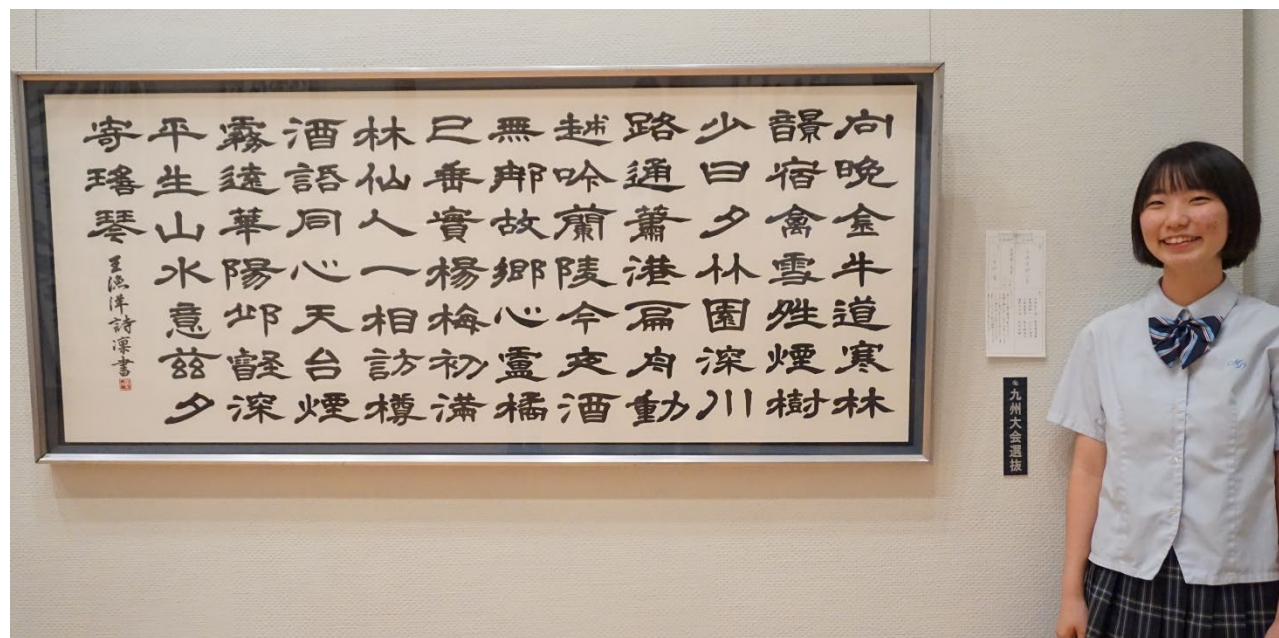 向晩金牛道寒林
宿禽雪夝煙樹
少日夕林園深川
路通蕭港扁舟動
越吟蘭陵今夜酒
無那故郷心盧橘
已垂實楊梅初滿
林仙人一相訪樽
酒語同心天台煙
霧遠華陽邱壑深
平生山水意茲夕
寄瑤琴
王漁洋詩凜書
九州大会選抜